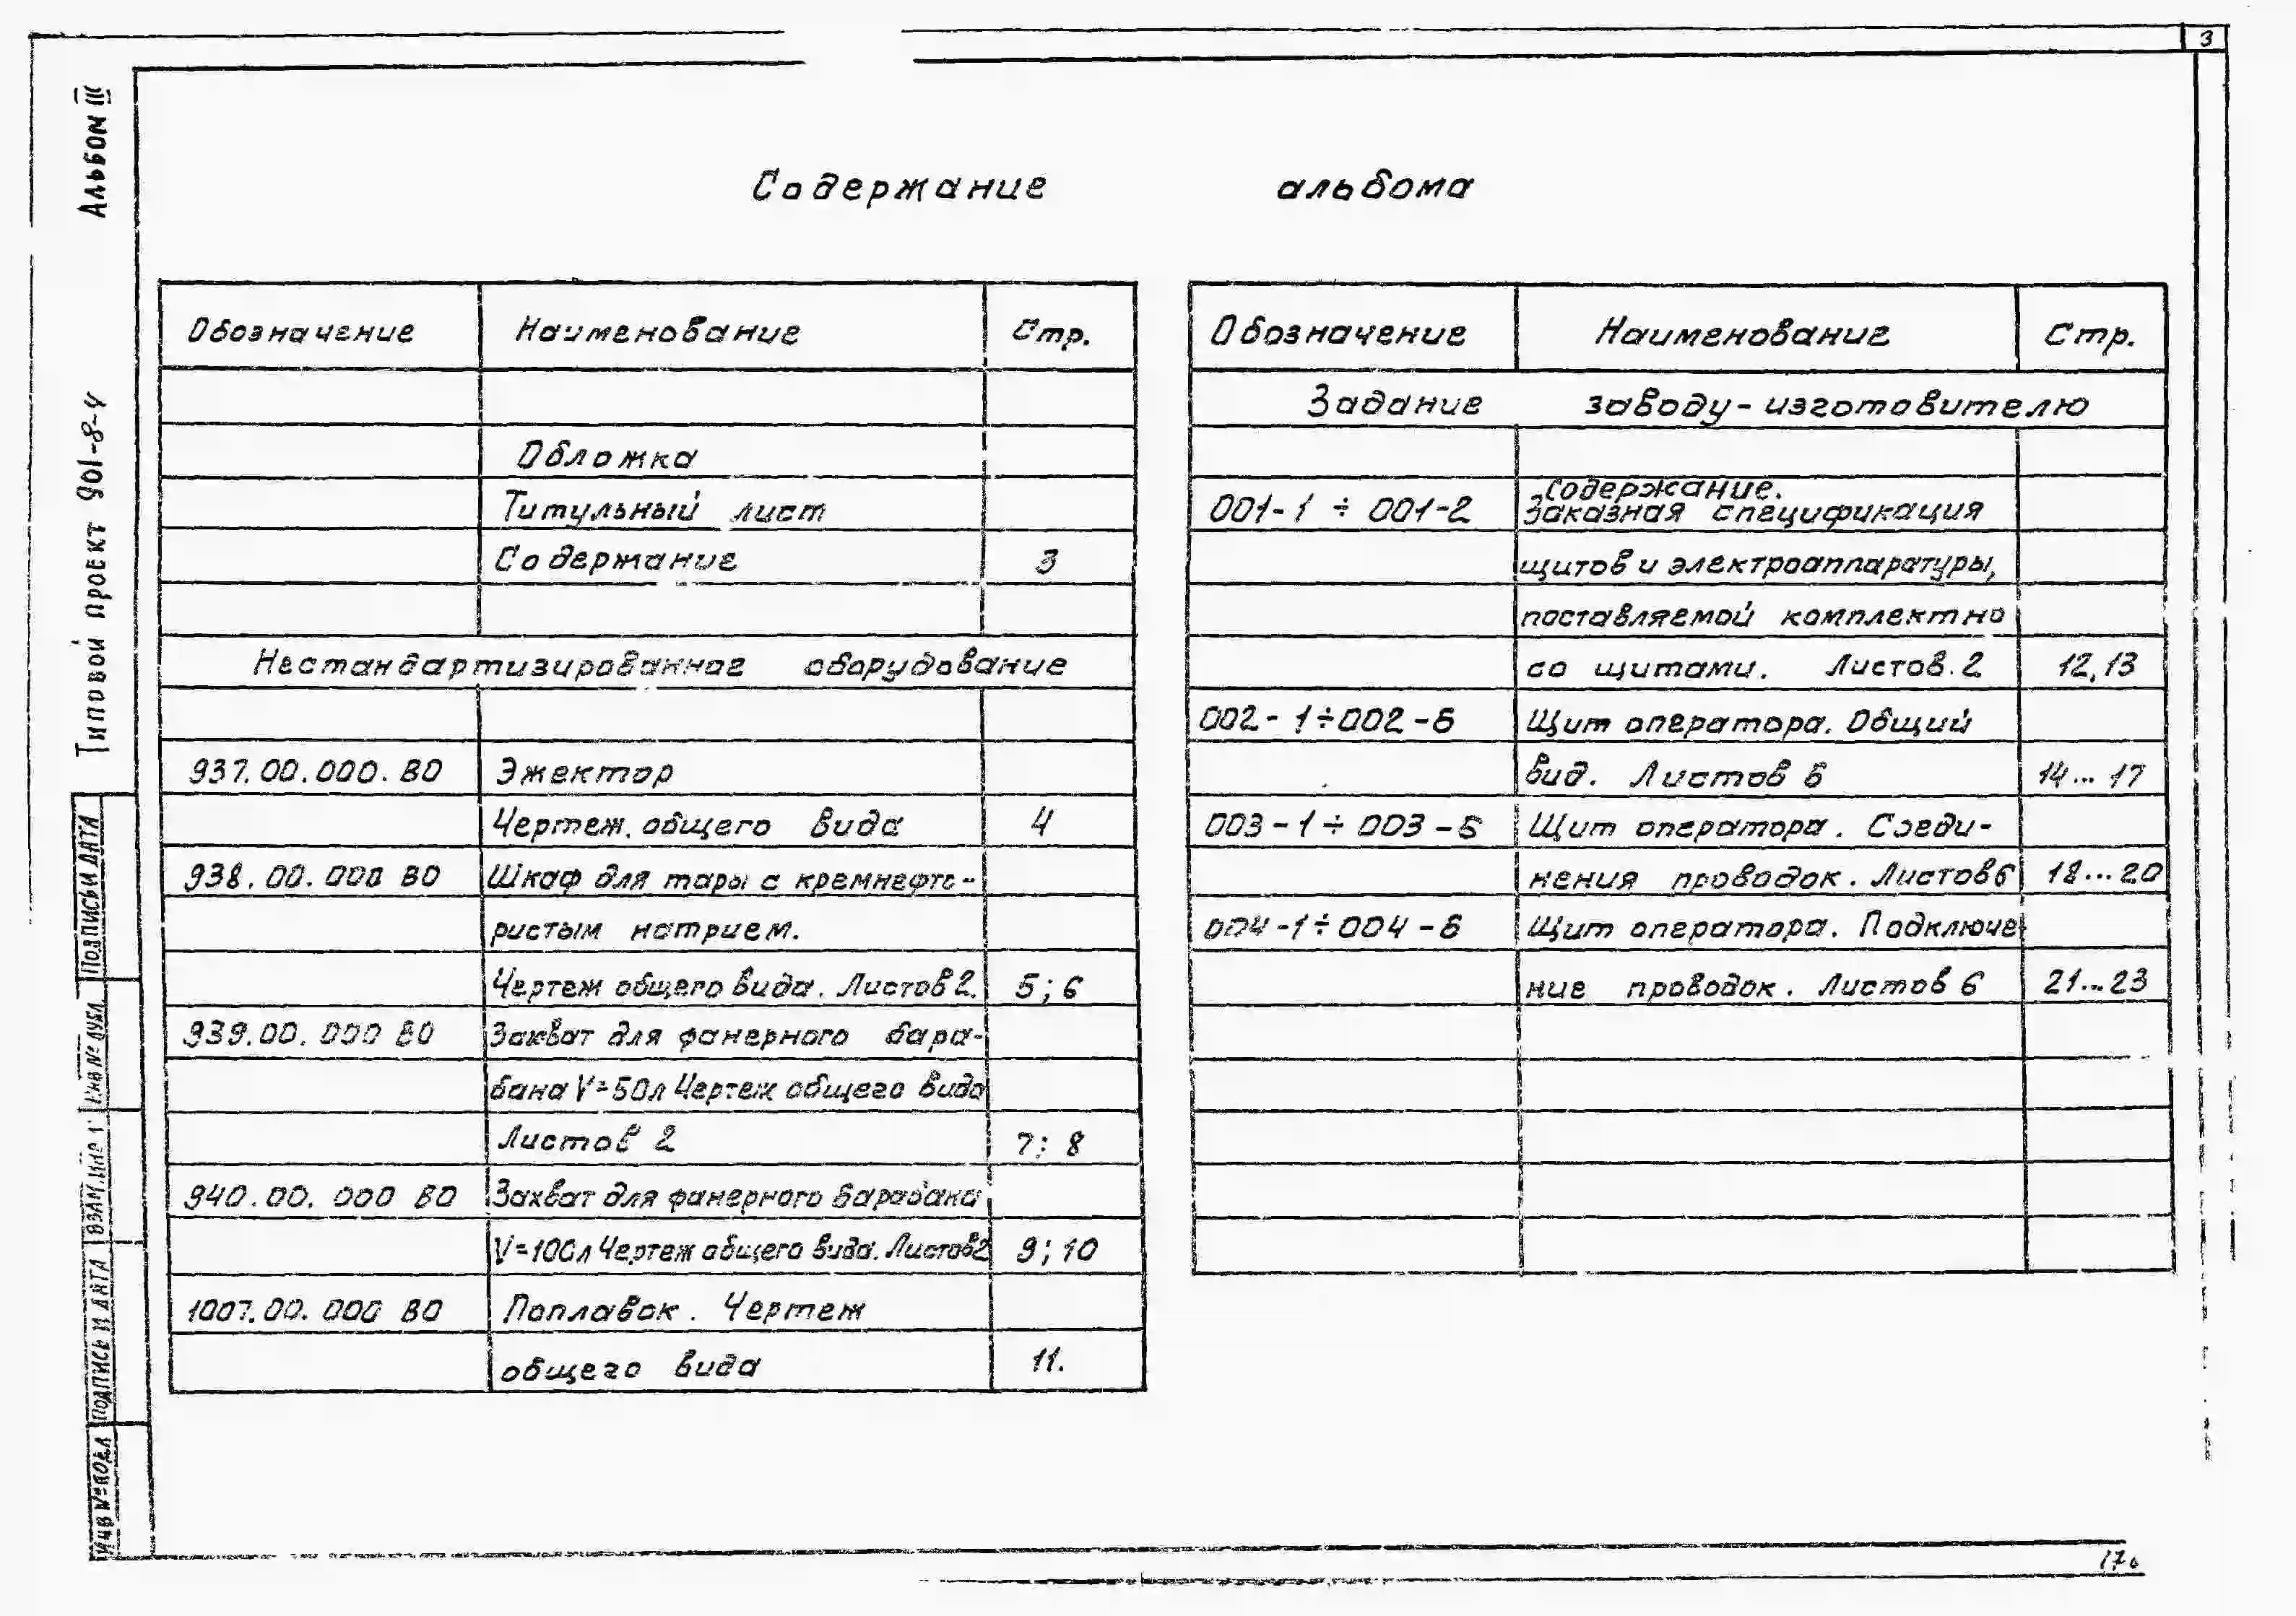 3
Альбом III
Типовой проект 901-8-4
Содержание альбома
Обозначение Наименование Стр.
Обложка
Титульный лист
Содержание 3
Нестандартизированное оборудование
937.00.000.ВО Эжектор
Чертеж. общего вида 4
938.00.000 ВО Шкаф для тары с кремнефто-
ристым натрием.
Чертеж общего вида. Листов 2. 5; 6
939.00.000 ВО Захват для фанерного бара-
бана V=50л Чертеж общего вида
Листов 2 7; 8
940.00.000 ВО Захват для фанерного барабана
V=100л Чертеж общего вида. Листов 2 9; 10
1007.00.000 ВО Поплавок. Чертеж
общего вида 11.
Обозначение Наименование Стр.
Задание заводу-изготовителю
Содержание.
001-1 ÷ 001-2 Заказная спецификация
щитов и электроаппаратуры,
поставляемой комплектно
со щитами. Листов. 2 12,13
002-1÷002-6 Щит оператора. Общий
вид. Листов 6 14...17
003-1÷003-6 Щит оператора. Соеди-
нения проводок. Листов 6 18...20
004-1÷004-6 Щит оператора. Подключе
ние проводок. Листов 6 21...23
Подпись и дата
Инв № дубл.
Взам. инв
Подпись и дата
Инв № подл